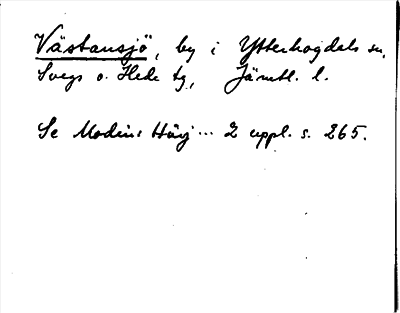 Västansjö, by i Ytterhogdals sn,
Svegs o. Hede tg, Jämtl. l.
Se Modins Härj... 2 uppl. s. 265.